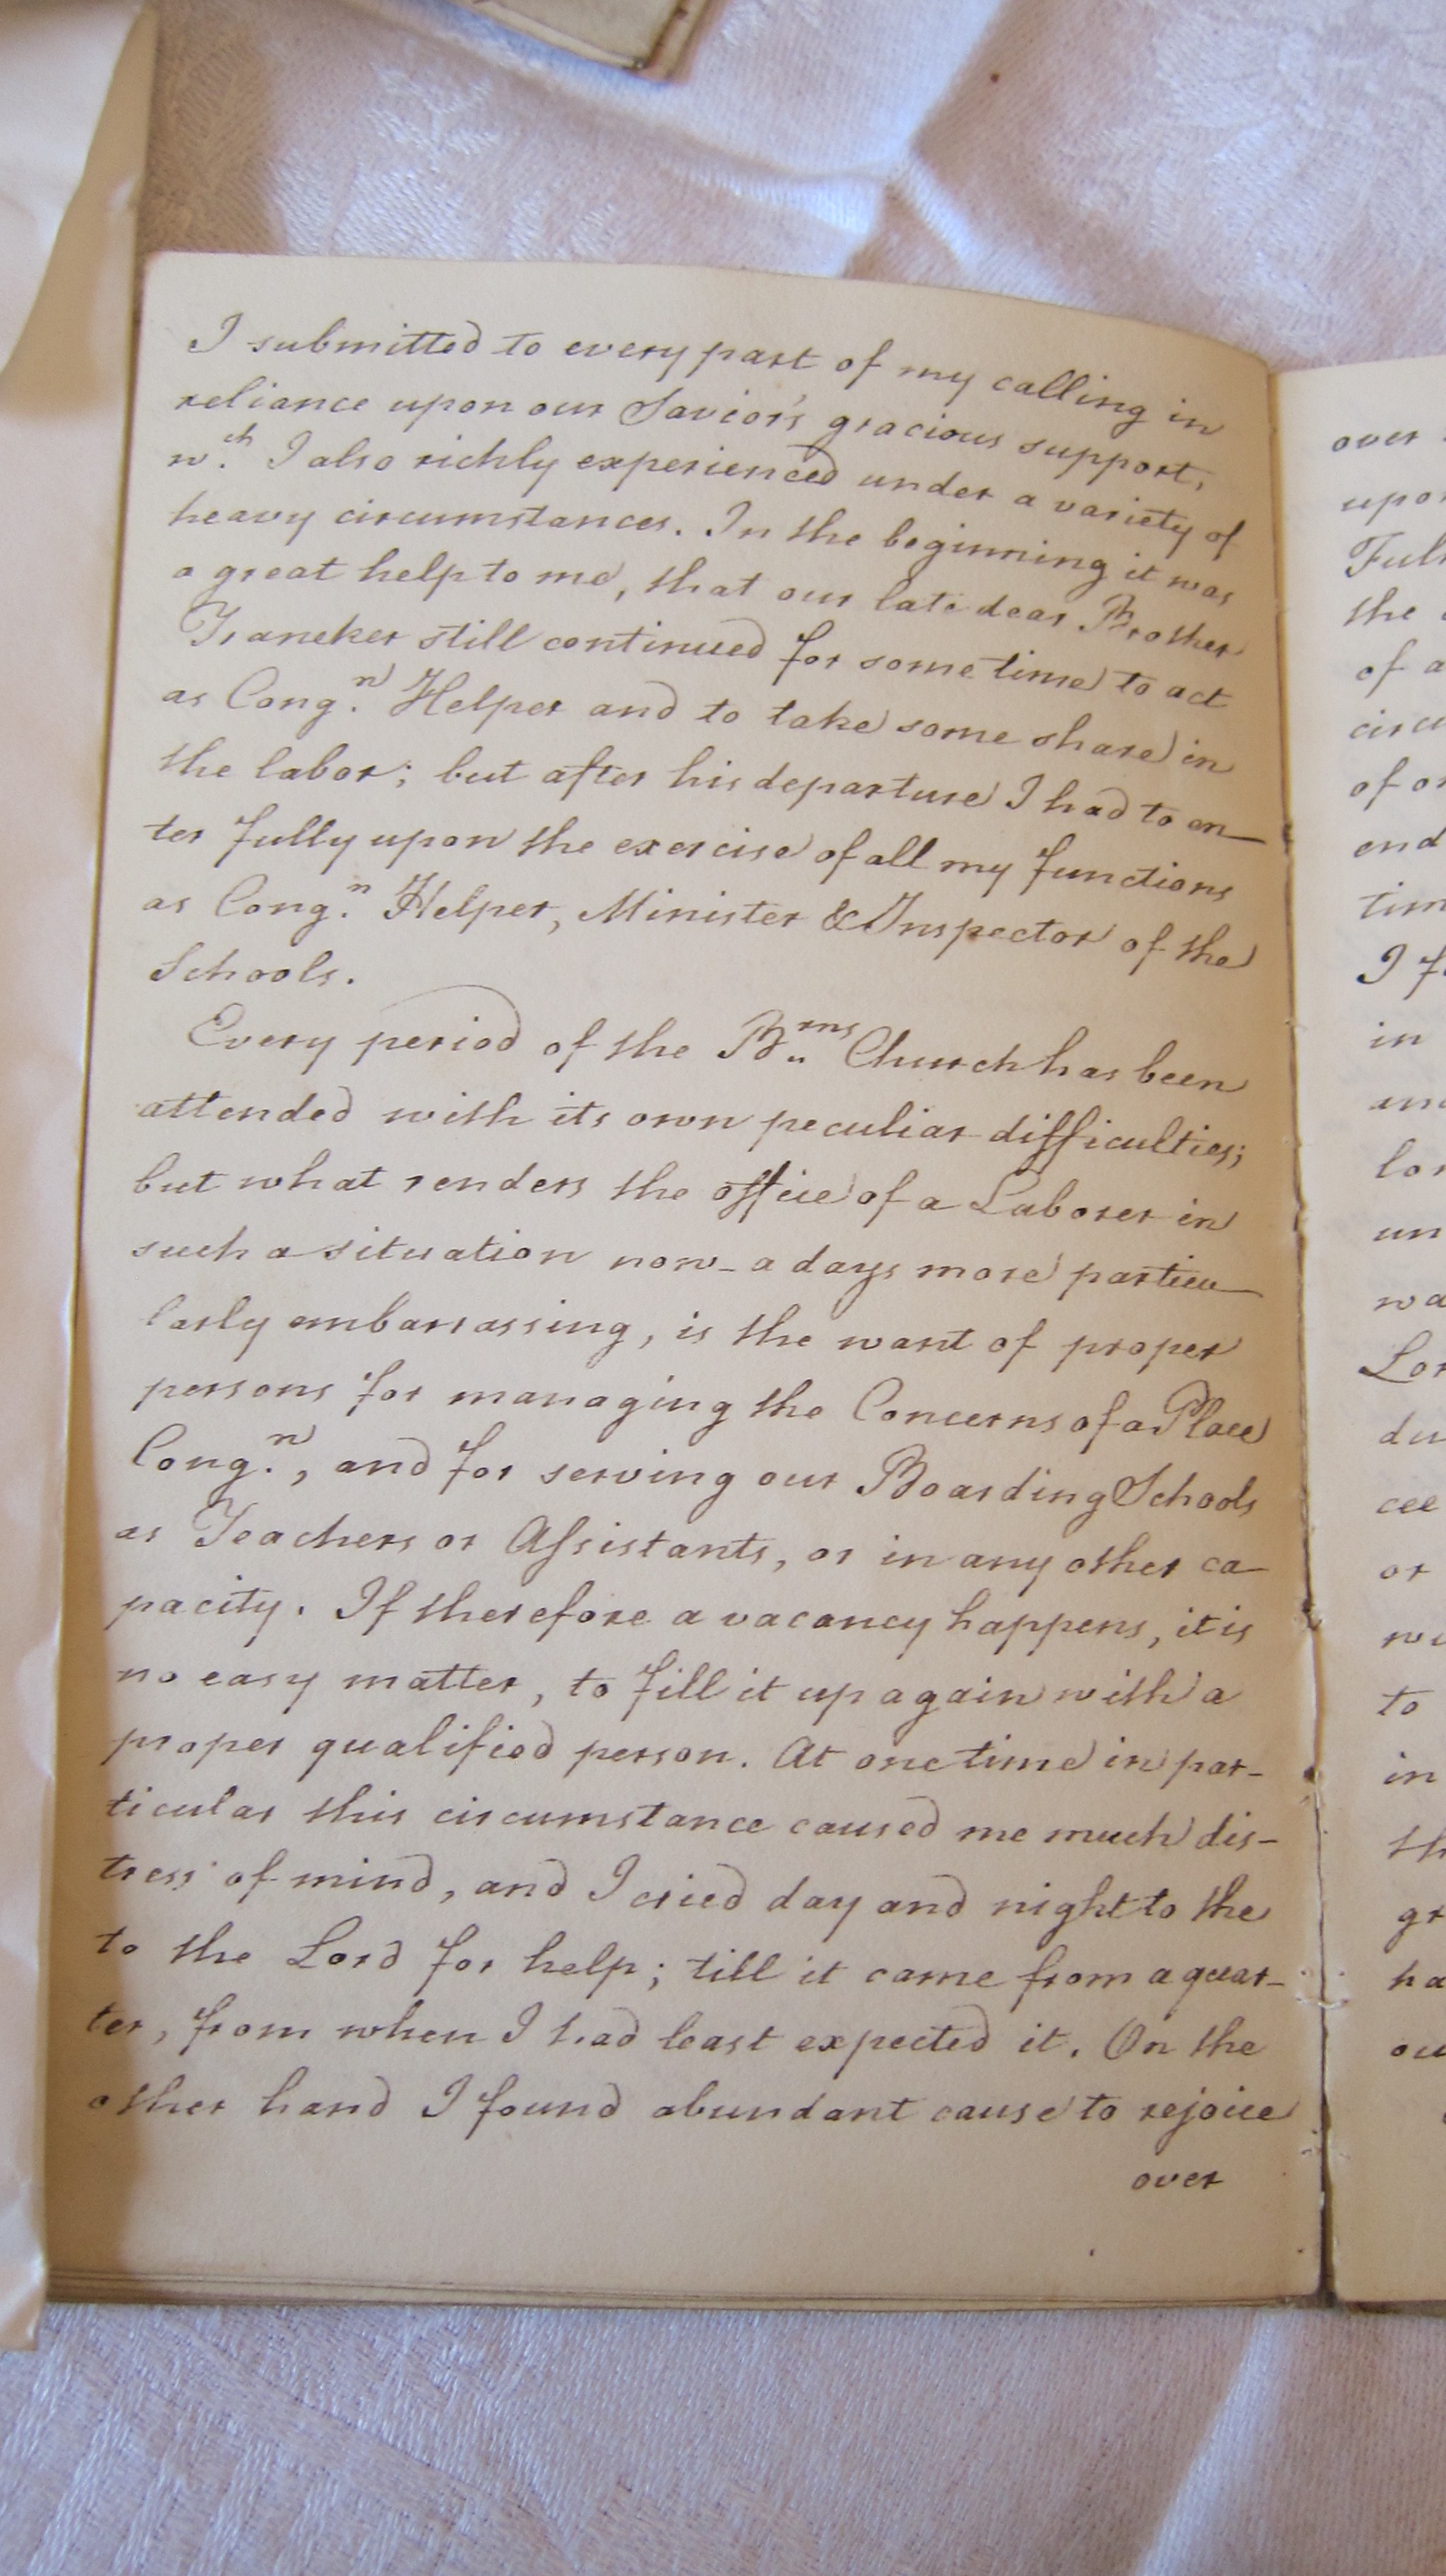 I submitted to every part of my calling in
reliance upon our Savior's gracious support,
wch. I also richly experienced under a variety of
heavy circumstances. In the beginning it was
a great help to me, that our late dear Brother
Traneker still continued for some time to act
as Congn. Helper and to take some share in
the labor; but after his departure I had to en-
ter fully upon the exercise of all my functions
as Congn. Helper, Minister & Inspector of the
Schools.
Every period of the Brns Church has been
attended with its own peculiar difficulties;
but what renders the office of a Laborer in
such a situation now-a days more particu-
larly embarrassing, is the want of proper
persons for managing the Concerns of a Place
Congn., and for serving our Boarding Schools
as Teachers or Assistants, or in any other ca-
pacity. If therefore a vacancy happens, it is
no easy matter, to fill it up again with a
proper qualified person. At one time in par-
ticular this circumstance caused me much dis-
tress of mind, and I cried day and night to the
to the Lord for help; till it came from a quar-
ter, from when I had least expected it. On the
other hand I found abundant cause to rejoice
over
over
upon
the
of a
of
end
tim
I
in
un
wa
Lor
du
cee
or
to
in
th
gr
ha
ou